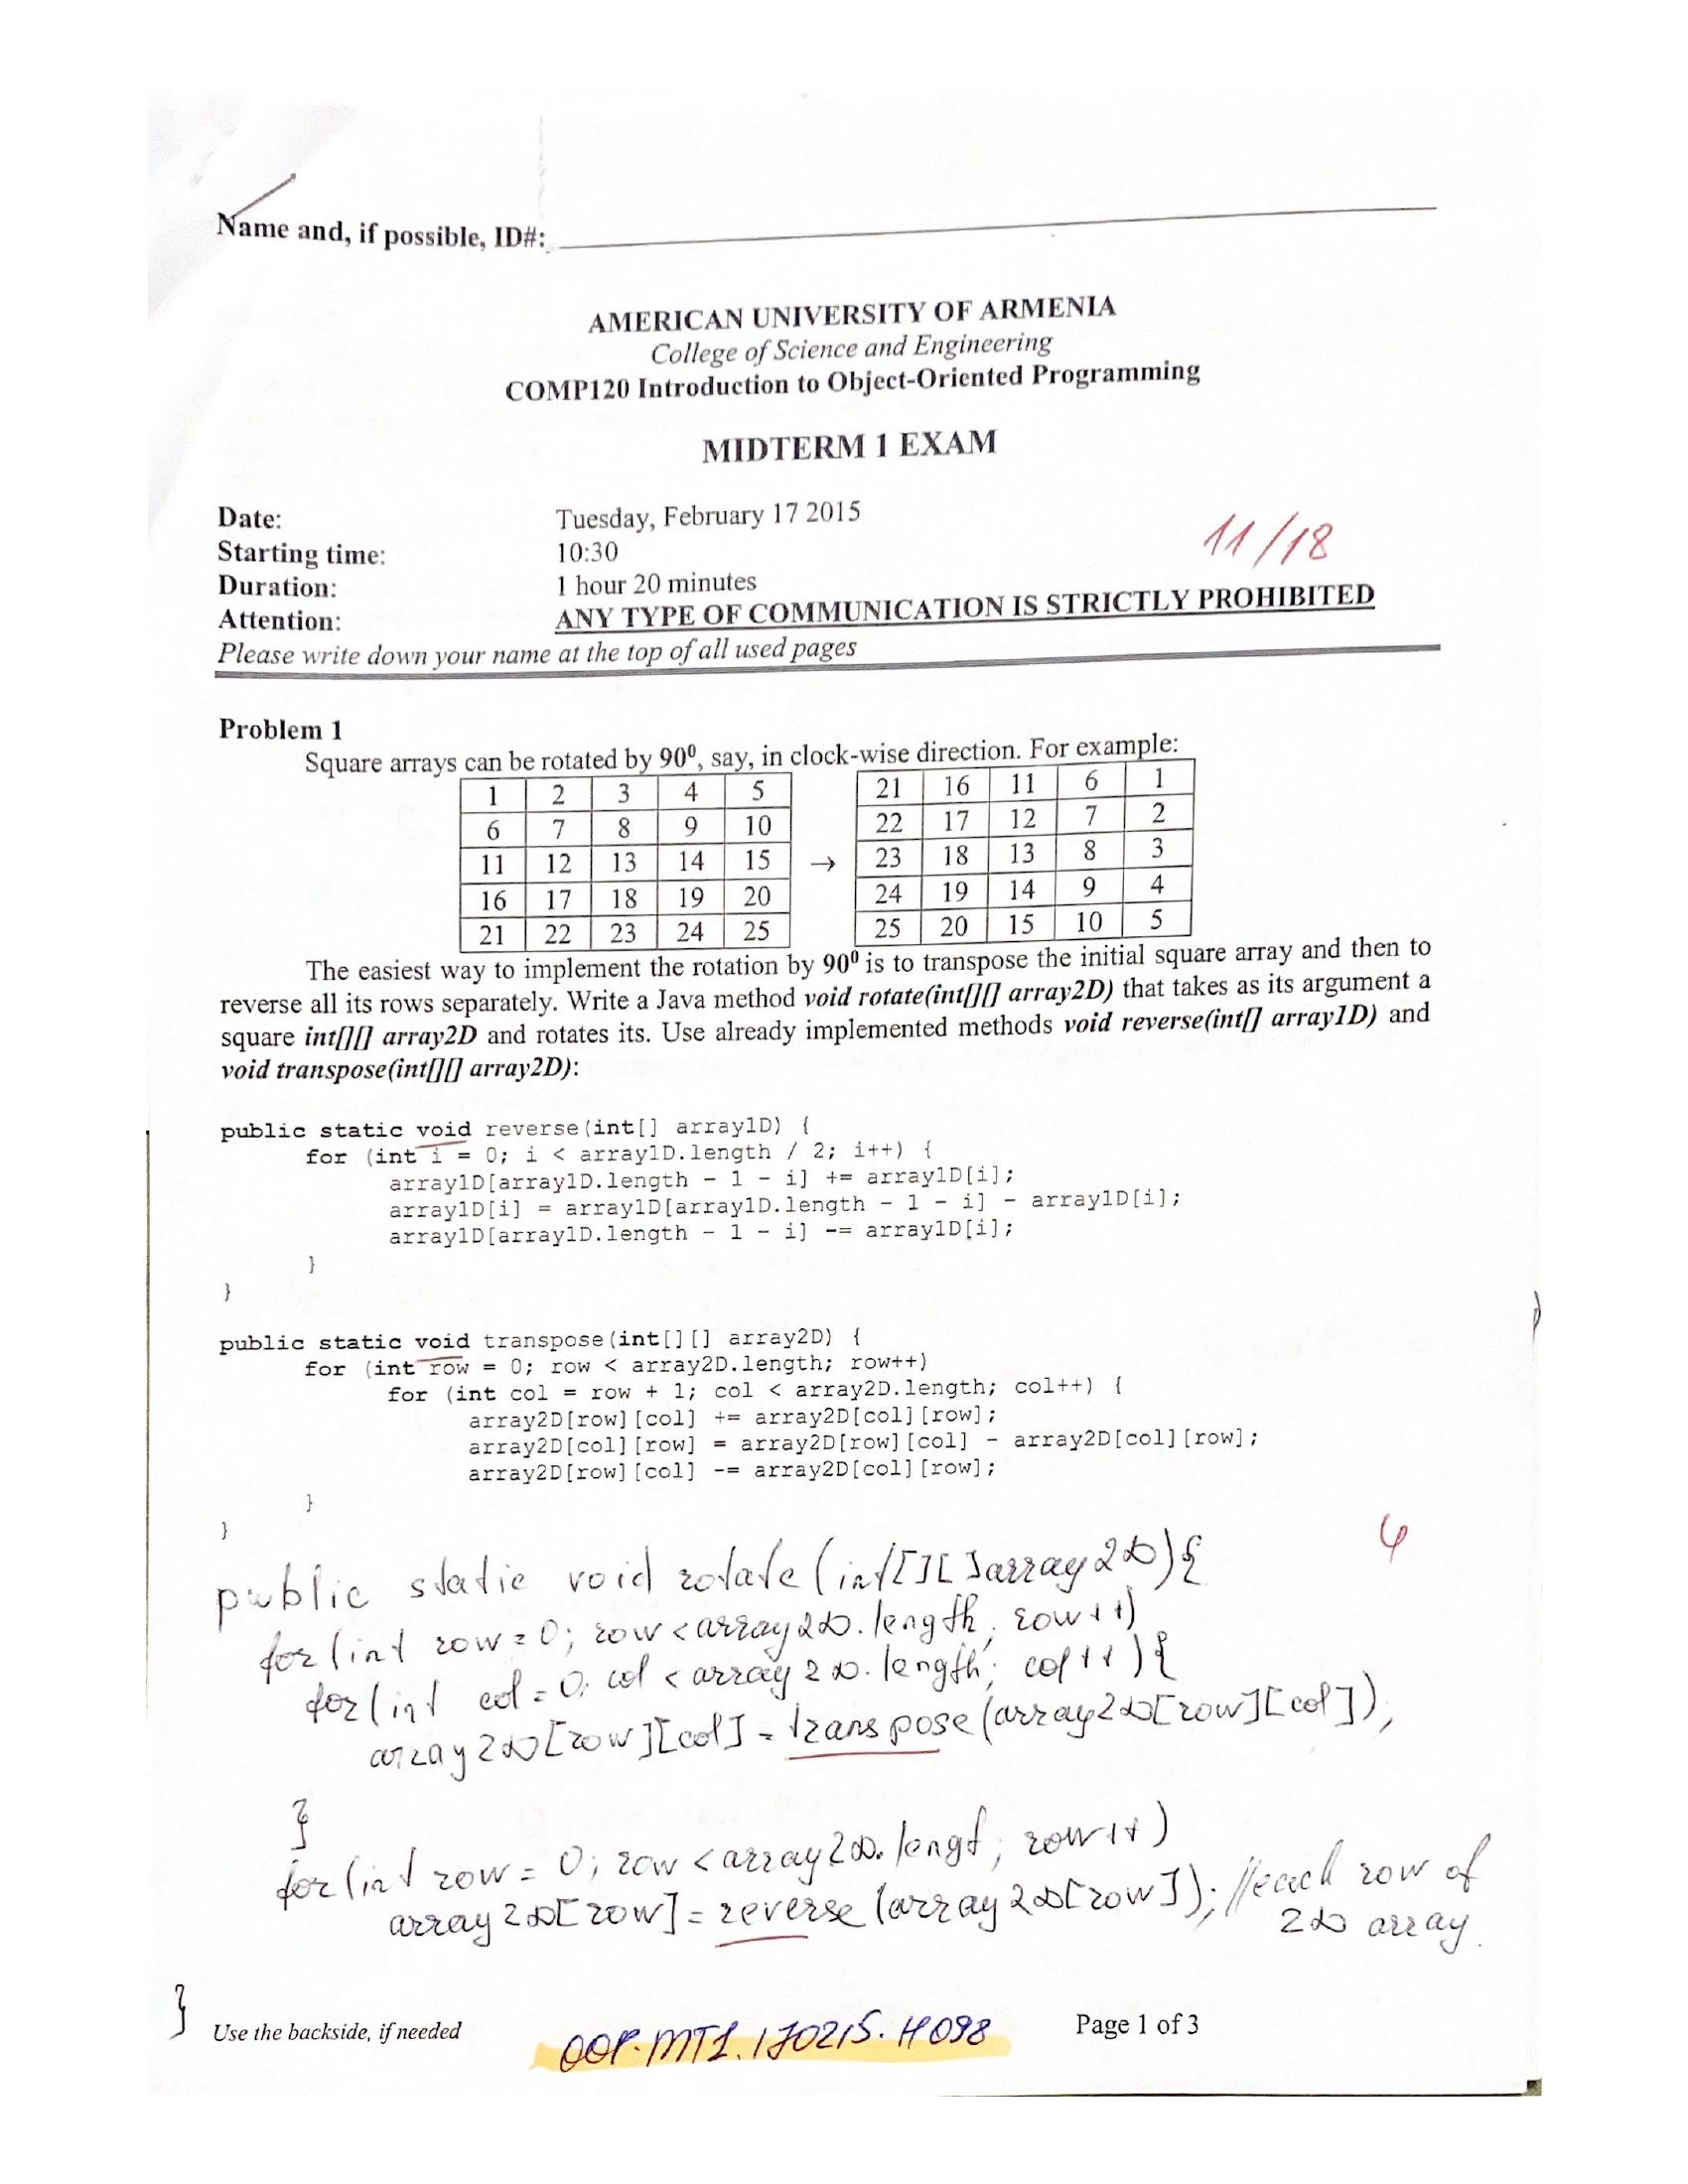 Name and, if possible, ID#:
AMERICAN UNIVERSITY OF ARMENIA
College of Science and Engineering
COMP120 Introduction to Object-Oriented Programming
MIDTERM 1 EXAM
Date: Tuesday, February 17 2015
11/18
Starting time: 10:30
Duration: 1 hour 20 minutes
Attention: ANY TYPE OF COMMUNICATION IS STRICTLY PROHIBITED
Please write down your name at the top of all used pages
Problem 1
Square arrays can be rotated by 90⁰, say, in clock-wise direction. For example:
1 2 3 4 5 21 16 11 6 1
6 7 8 9 10 22 17 12 7 2
11 12 13 14 15 → 23 18 13 8 3
16 17 18 19 20 24 19 14 9 4
21 22 23 24 25 25 20 15 10 5
The easiest way to implement the rotation by 90⁰ is to transpose the initial square array and then to
reverse all its rows separately. Write a Java method void rotate(int[][] array2D) that takes as its argument a
square int[][] array2D and rotates its. Use already implemented methods void reverse(int[] array1D) and
void transpose(int[][] array2D):
public static void reverse(int[] array1D) {
for (int i = 0; i < array1D.length / 2; i++) {
array1D[array1D.length - 1 - i] += array1D[i];
array1D[i] = array1D[array1D.length - 1 - i] - array1D[i];
array1D[array1D.length - 1 - i] -= array1D[i];
}
}
public static void transpose(int[][] array2D) {
for (int row = 0; row < array2D.length; row++)
for (int col = row + 1; col < array2D.length; col++) {
array2D[row][col] += array2D[col][row];
array2D[col][row] = array2D[row][col] - array2D[col][row];
array2D[row][col] -= array2D[col][row];
}
}
public static void rotate (int[][]array2D){
for(int row=0; row<array2D.length; row++)
for(int col=0; col<array2D.length; col++){
array2D[row][col]=transpose(array2D[row][col]);
}
for(int row=0; row<array2D.lengt; row++)
array2D[row]=reverse(array2D[row]); //each row of
2D array.
}
Use the backside, if needed
OOP.MT1.170215.H098
Page 1 of 3